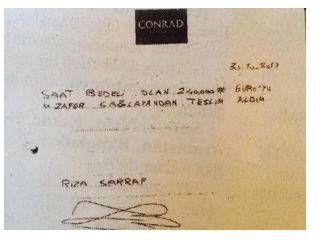 CONRAD
SAAT BEDELİ OLAN 240.000# EURO'YU
M. ZAFER ÇAĞLAYANDAN TESLİM ALDIM
RIZA SARRAF